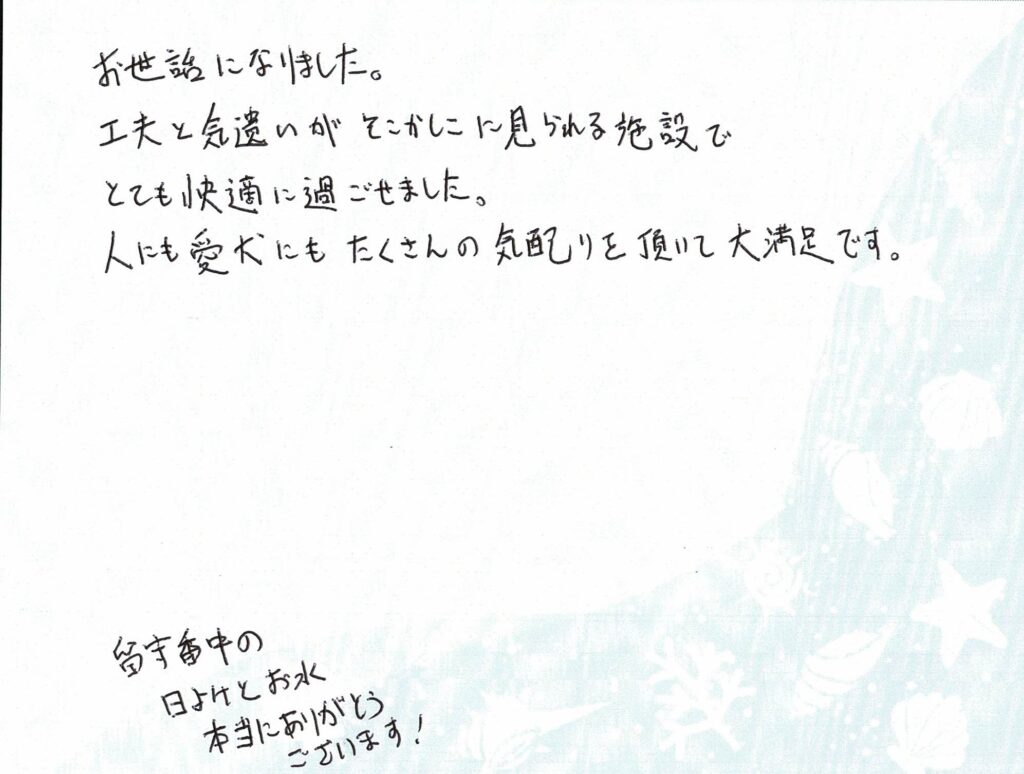 お世話になりました。
工夫と気遣いがそこかしこに見られる施設で
とても快適に過ごせました。
人にも愛犬にもたくさんの気配りを頂いて大満足です。
留守番中の
日よけとお水
本当にありがとう
ございます!